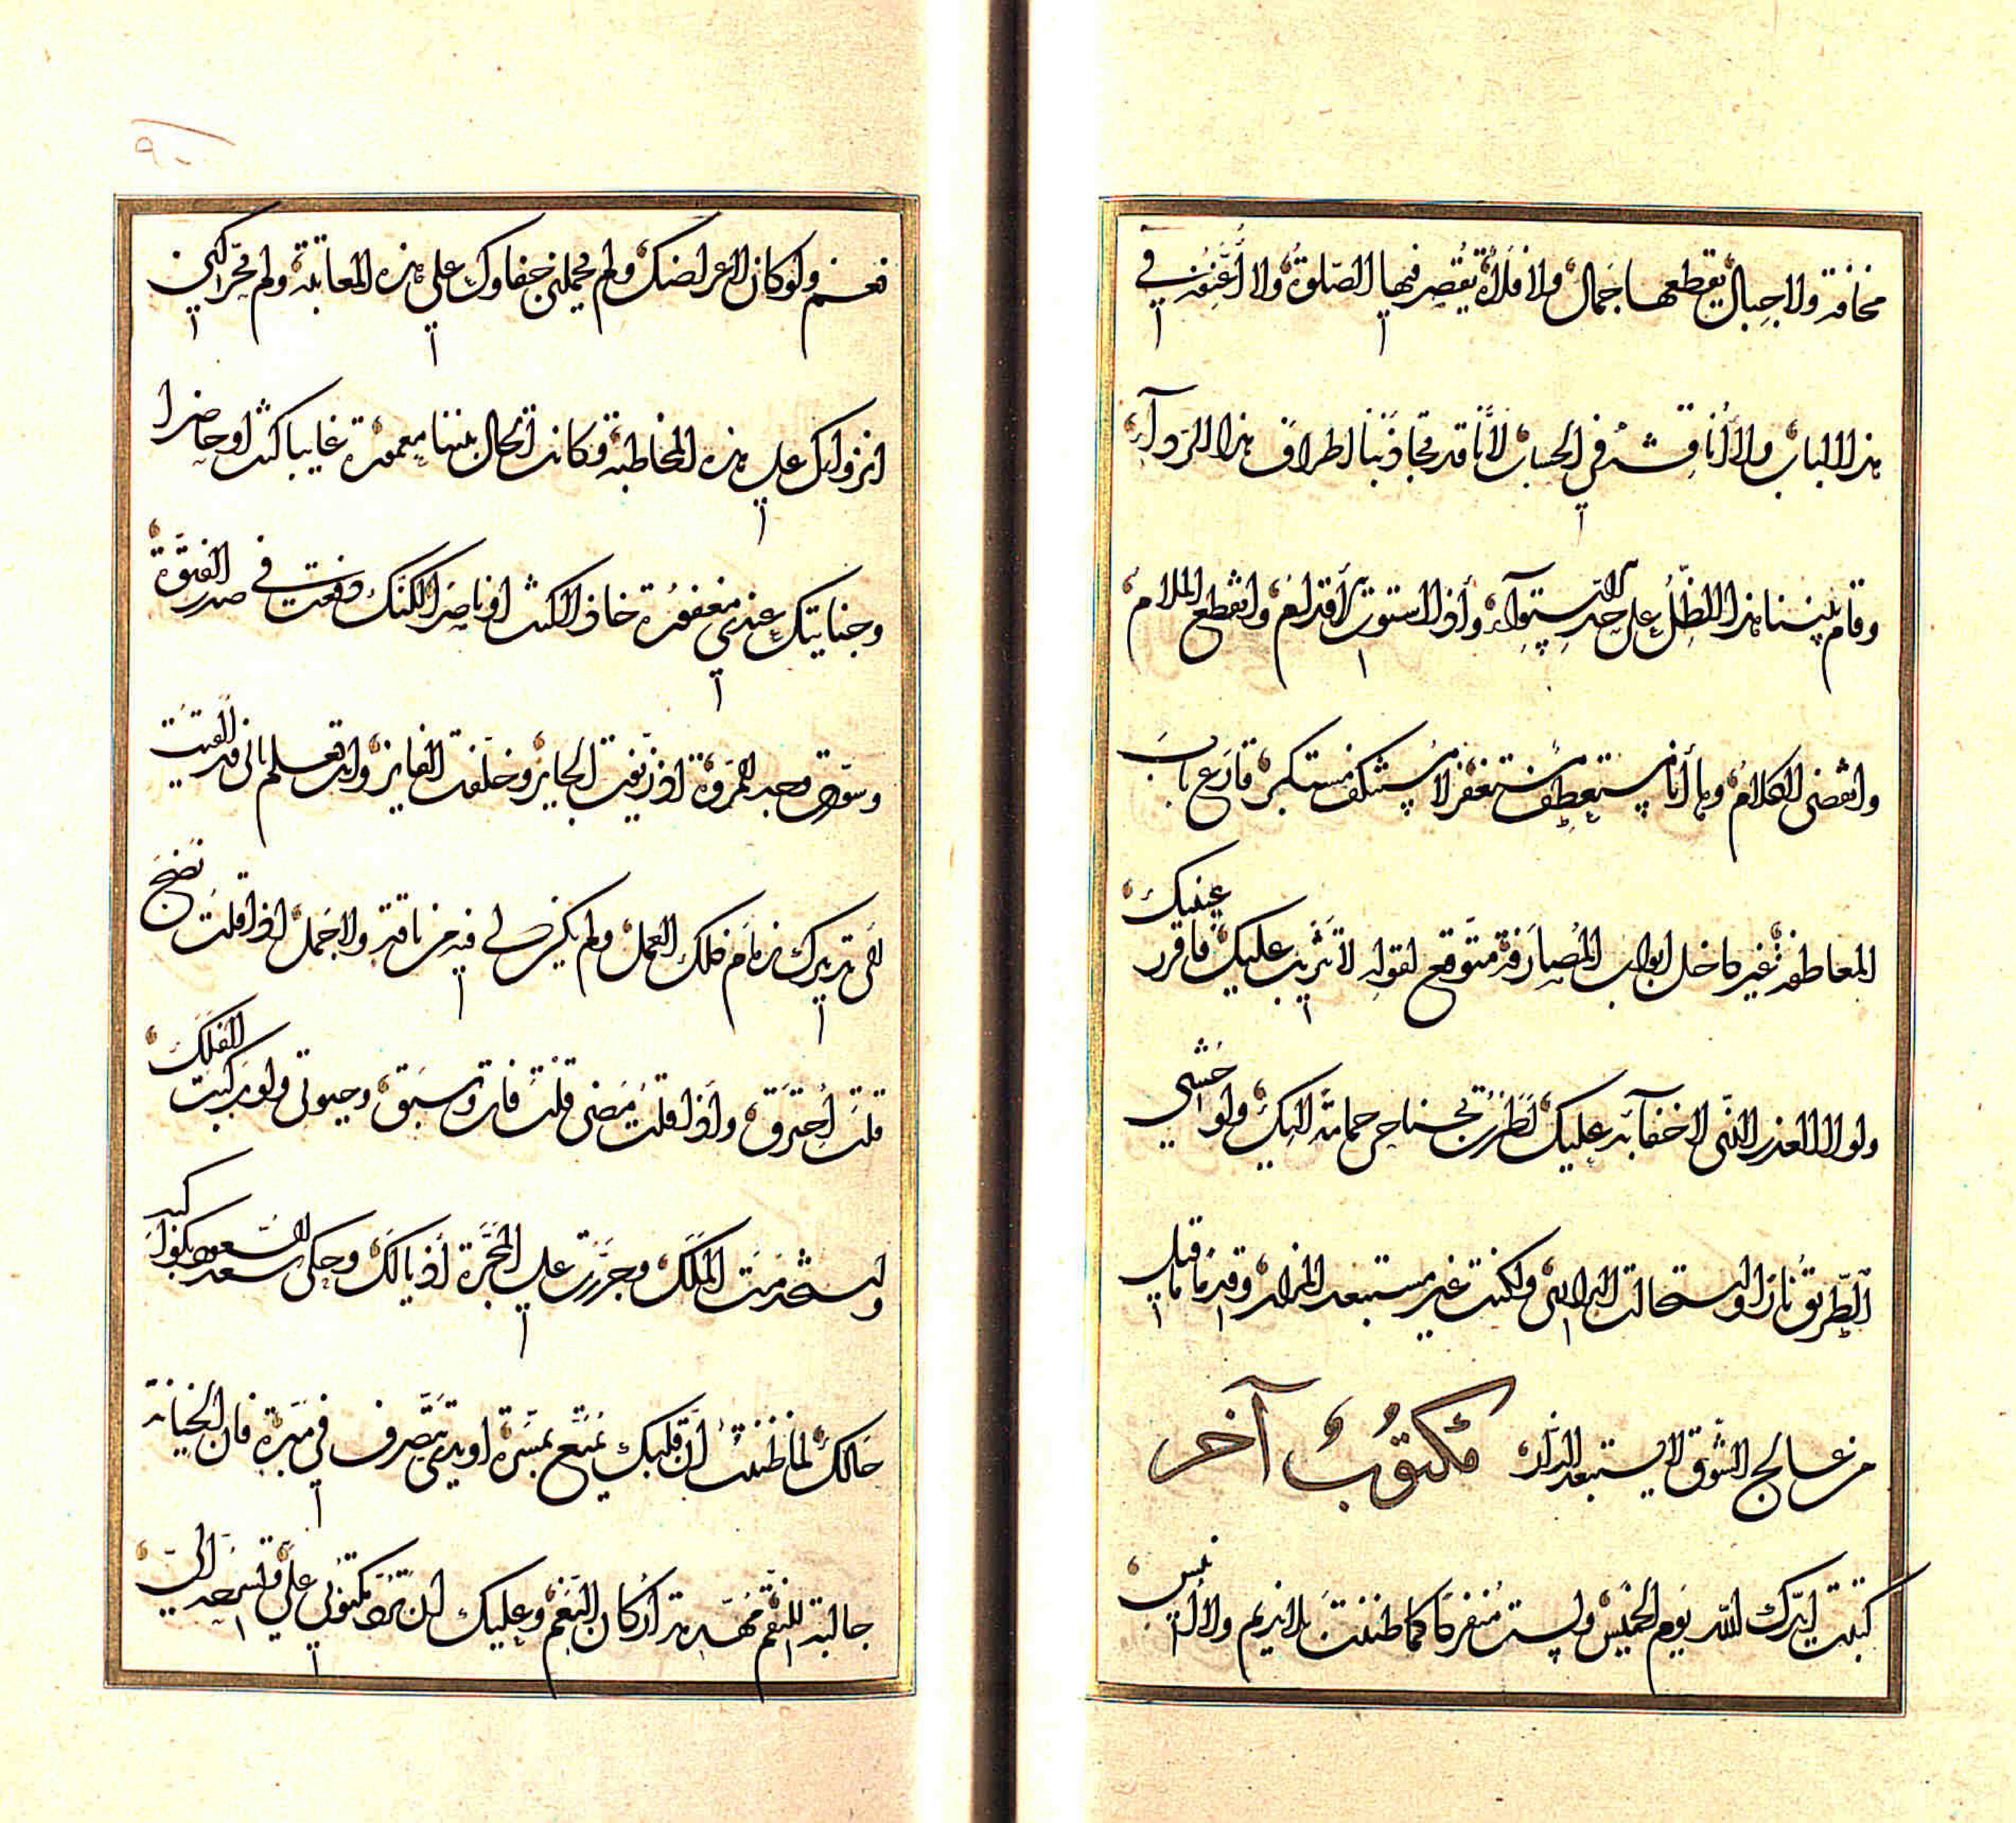 مخافة ولا جبال يقطعها جمال ولا فلاة يقصر فيها الصلوة ولا أعنفه في
هذا الباب ولا أناقشه في الحساب لأنا قد تجاذبنا اطراف هذا الردآء
وقام بيننا هذا الظل على حد الاستوآء وأذا استوت الأقدام وانقطع الملام
وانقضى الكلام وها أنا مستعطف مستغفر لا مستنكف مستكبر قارع باب
المعاطفة غير داخل ابواب المصارفة متوقع لقوله لا تثريب عليك فاقرر عينيك
ولولا العذر الذي لا خفآء به عليك لطرت بجناحي حمامة اليك ولو حشي
الطريق نارا واستحالت البراري ولكنت غير مستبعد المزار وقدما قيل
من عالج الشوق لا يستبعد الدار مكتوب آخر
كتبت ايدك الله يوم الخميس ولست منفردا كما ظننت بلا نديم ولا أنيس
٩٠
فعسى ولو كان لاعراضك ولم يحملني جفاوك على هذه المعاتبة ولم يحركني
انزواوك على هذه المخاطبة فكانت الحال بيننا معمورة غايبا كنت او حاضرا
وجنايتك عندي مغفورة خاذلا كنت او ناصرا لكنك دفعت في صدر الفتوة
وسودت وجه المروة اذ زيفت الجايز وخلفت الفايز وانت تعلم باني قد ألقيت
لفي تدبيرك زمام فلك العمل ولم يكن لي فيه من ناقة ولا جمل اذا قلت نضج
قلت احترق واذا قلت مضى قلت فات وسبق وحيوتي ولو ركبت الفلك
واستخدمت الملك وجررت على المجرة أذيالك وحكى سعد السعود بكواكبه
حالك لما ظننت ان قلبك يمتع بمسرة او يدي يتصرف في مبرة فان الخيانة
جالبة للنقم مهدمة أركان النعم وعليك ان ترد مكتوبي علي وتسرحه الي